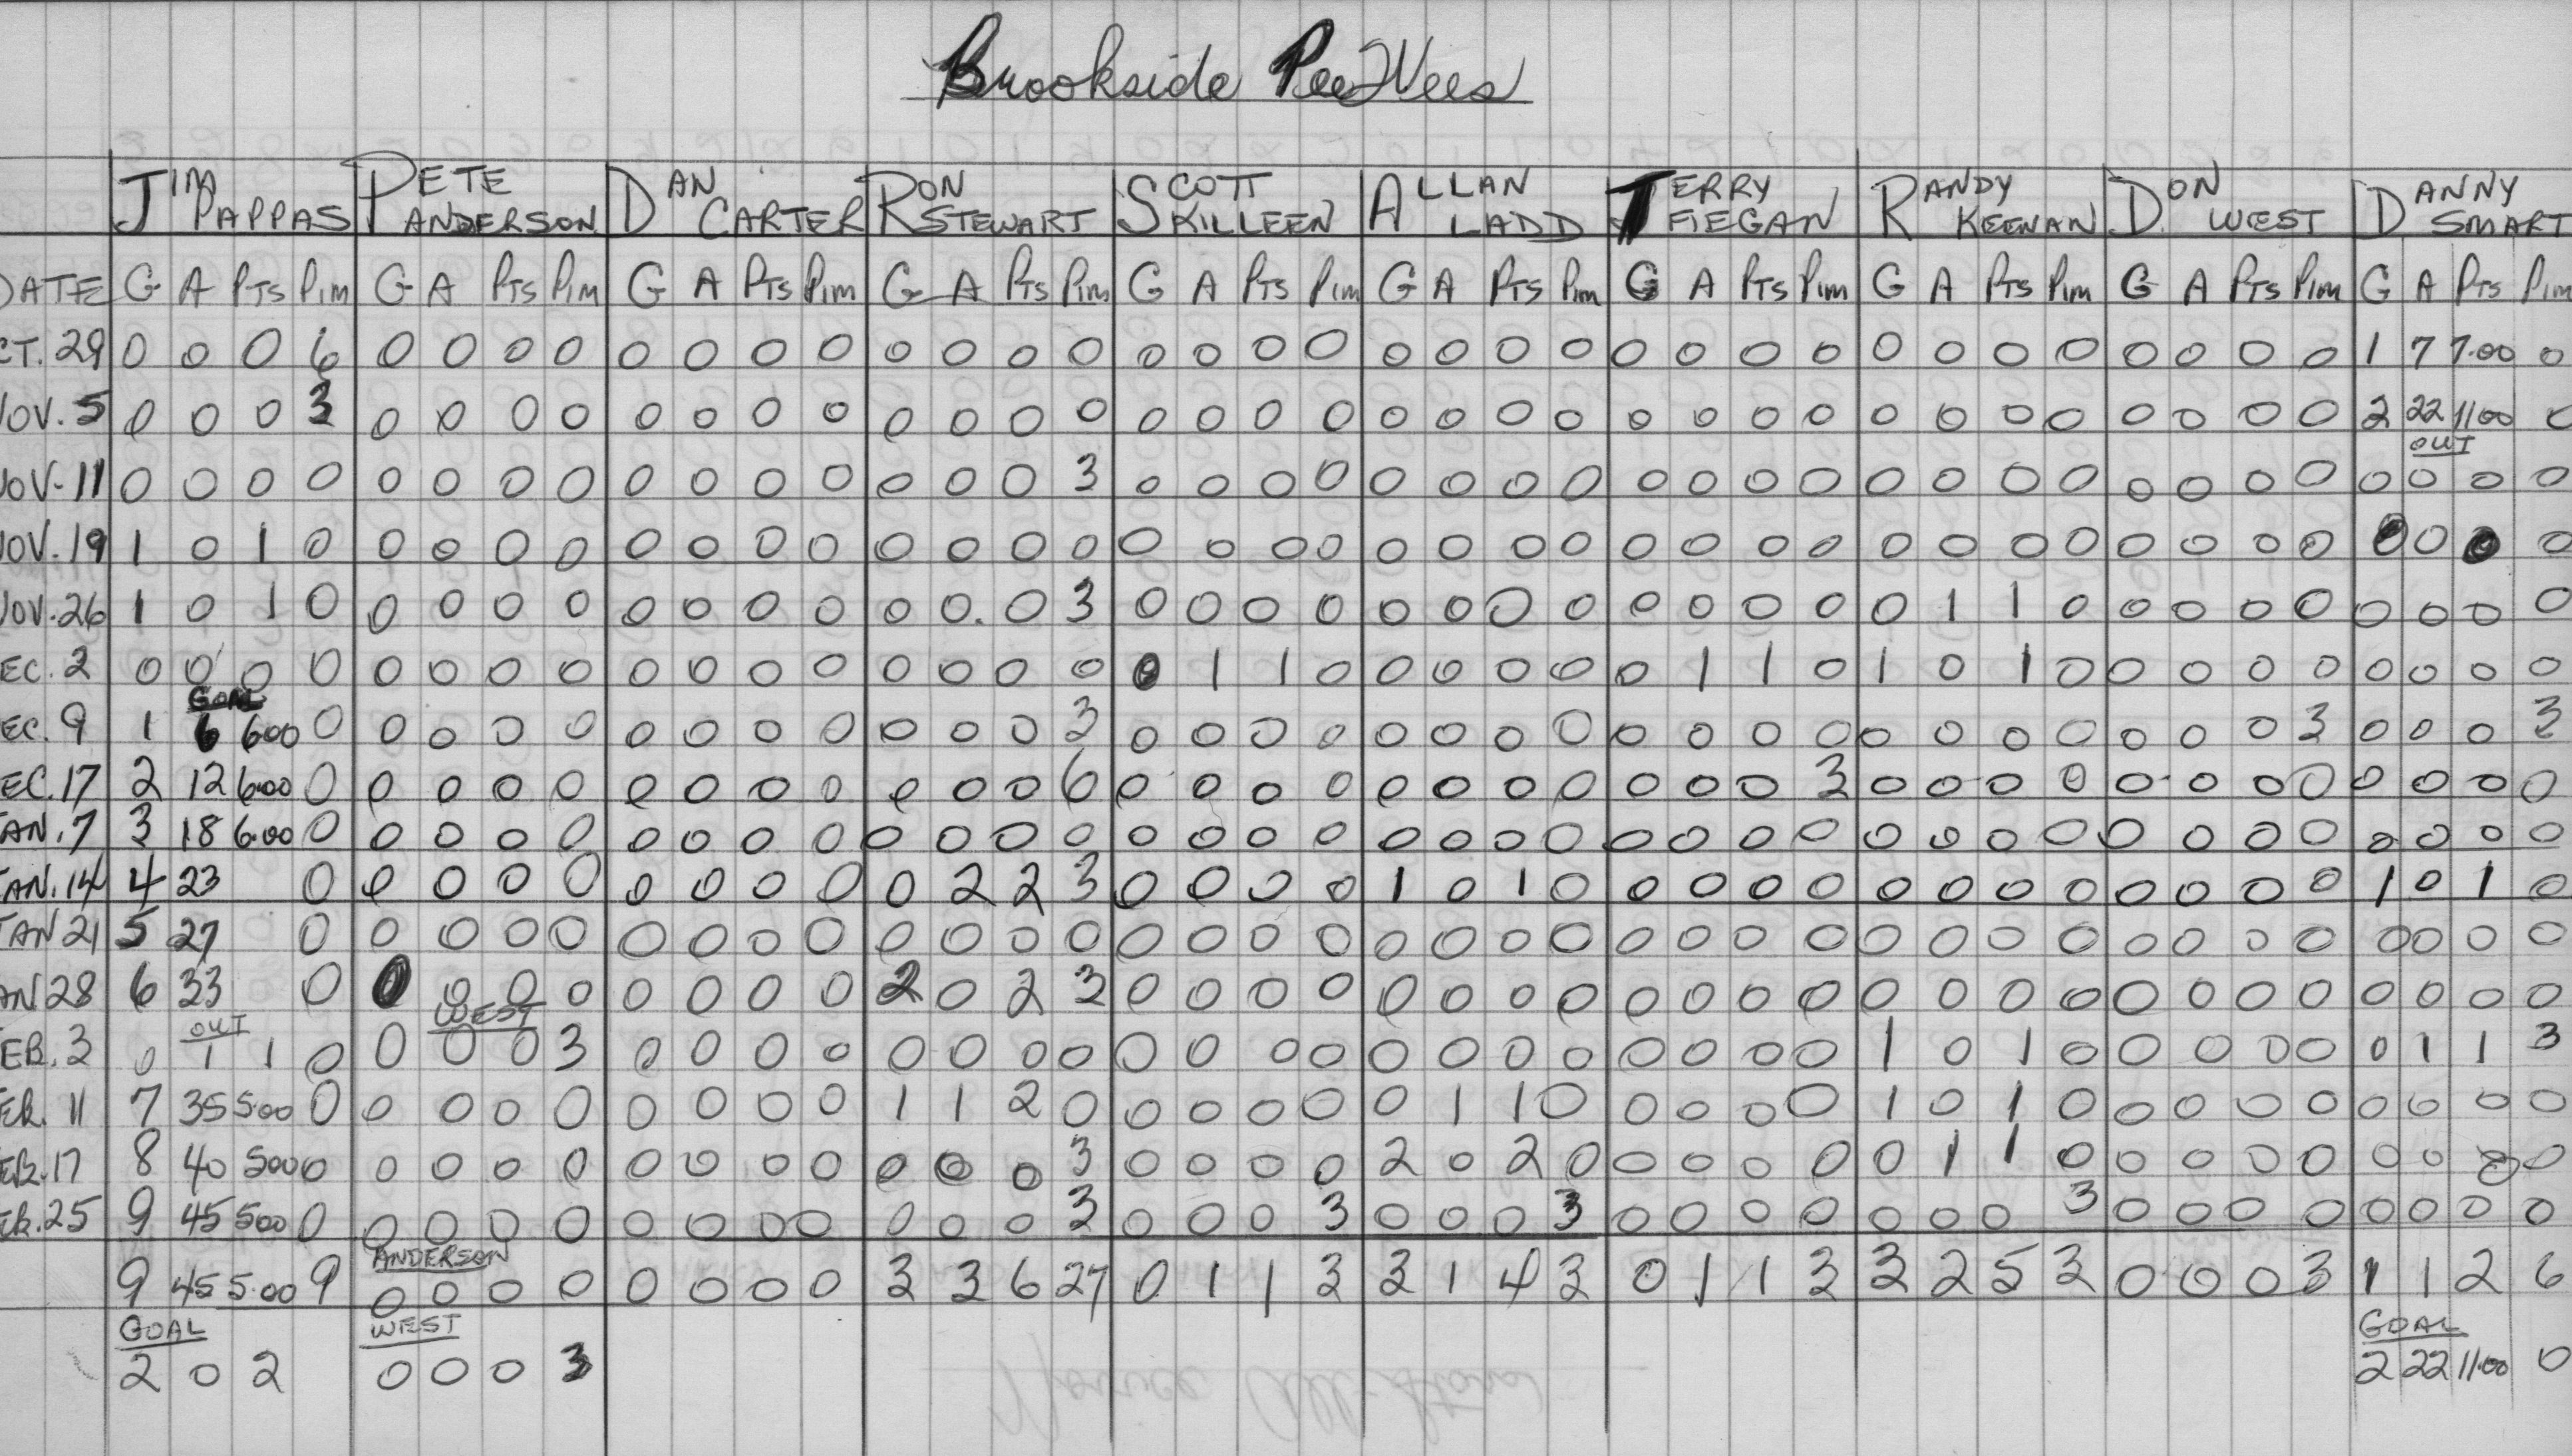 Brookside PeeWees
JIM PAPPAS PETE ANDERSON DAN CARTER RON STEWART SCOTT SKILLEEN ALLAN LADD TERRY FIEGAN RANDY KEENAN DON WEST DANNY SMART
DATE G A PTS Pim G A PTS Pim G A PTS Pim G A PTS Pim G A PTS Pim G A PTS Pim G A PTS Pim G A PTS Pim G A PTS Pim G A PTS Pim
CT. 29 0 0 0 6 0 0 0 0 0 0 0 0 0 0 0 0 0 0 0 0 0 0 0 0 0 0 0 0 0 0 0 0 0 0 0 0 1 7 7.00 0
NOV. 5 0 0 0 3 0 0 0 0 0 0 0 0 0 0 0 0 0 0 0 0 0 0 0 0 0 0 0 0 0 0 0 0 0 0 0 0 2 22 11.00 0
OUT
NOV. 11 0 0 0 0 0 0 0 0 0 0 0 0 0 0 0 3 0 0 0 0 0 0 0 0 0 0 0 0 0 0 0 0 0 0 0 0 0 0 0 0
NOV. 19 1 0 1 0 0 0 0 0 0 0 0 0 0 0 0 0 0 0 0 0 0 0 0 0 0 0 0 0 0 0 0 0 0 0 0 0 0 0 0 0
NOV. 26 1 0 1 0 0 0 0 0 0 0 0 0 0 0. 0 3 0 0 0 0 0 0 0 0 0 0 0 0 0 1 1 0 0 0 0 0 0 0 0 0
EC. 2 0 0 0 0 0 0 0 0 0 0 0 0 0 0 0 0 0 1 1 0 0 0 0 0 0 1 1 0 1 0 1 0 0 0 0 0 0 0 0 0
GOAL
EC. 9 1 6 6.00 0 0 0 0 0 0 0 0 0 0 0 0 3 0 0 0 0 0 0 0 0 0 0 0 0 0 0 0 0 0 0 0 3 0 0 0 3
EC. 17 2 12 6.00 0 0 0 0 0 0 0 0 0 0 0 0 6 0 0 0 0 0 0 0 0 0 0 0 3 0 0 0 0 0 0 0 0 0 0 0 0
AN. 7 3 18 6.00 0 0 0 0 0 0 0 0 0 0 0 0 0 0 0 0 0 0 0 0 0 0 0 0 0 0 0 0 0 0 0 0 0 0 0 0 0
AN. 14 4 23 0 0 0 0 0 0 0 0 0 0 2 2 3 0 0 0 0 1 0 1 0 0 0 0 0 0 0 0 0 0 0 0 0 1 0 1 0
JAN 21 5 27 0 0 0 0 0 0 0 0 0 0 0 0 0 0 0 0 0 0 0 0 0 0 0 0 0 0 0 0 0 0 0 0 0 0 0 0 0
AN 28 6 33 0 0 0 0 0 0 0 0 0 2 0 2 3 0 0 0 0 0 0 0 0 0 0 0 0 0 0 0 0 0 0 0 0 0 0 0 0
OUT WEST
EB. 3 0 1 1 0 0 0 0 3 0 0 0 0 0 0 0 0 0 0 0 0 0 0 0 0 0 0 0 0 1 0 1 0 0 0 0 0 0 1 1 3
EB. 11 7 35 5.00 0 0 0 0 0 0 0 0 0 1 1 2 0 0 0 0 0 0 1 1 0 0 0 0 0 1 0 1 0 0 0 0 0 0 0 0 0
EB. 17 8 40 5.00 0 0 0 0 0 0 0 0 0 0 0 0 3 0 0 0 0 2 0 2 0 0 0 0 0 0 1 1 0 0 0 0 0 0 0 0 0
EB. 25 9 45 5.00 0 0 0 0 0 0 0 0 0 0 0 0 3 0 0 0 3 0 0 0 3 0 0 0 0 0 0 0 3 0 0 0 0 0 0 0 0
ANDERSON
9 45 5.00 9 0 0 0 0 0 0 0 0 3 3 6 27 0 1 1 3 3 1 4 3 0 1 1 3 3 2 5 3 0 0 0 3 1 1 2 6
GOAL WEST GOAL
2 0 2 0 0 0 3 2 22 11.00 0